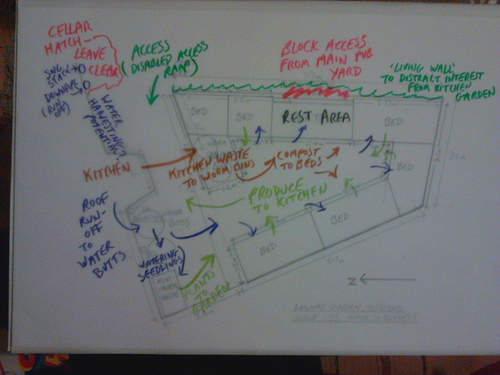 CELLAR
HATCH-
LEAVE
CLEAR
SVG
STACK→O
DOWNPIPE→O
(RUN
OFF)
WATER
HARVESTING
POTENTIAL
ACCESS
(DISABLED ACCESS
RAMP)
BLOCK ACCESS
FROM MAIN PUB
YARD
'LIVING WALL'
TO DISTRACT INTEREST
FROM KITCHEN
GARDEN
BED
BED
REST AREA
BED
KITCHEN
KITCHEN WASTE
TO WORM BINS
COMPOST
TO BEDS
PRODUCE
TO KITCHEN
ROOF
RUN-
OFF
TO
WATER
BUTTS
WATERING
SEEDLINGS
PLANTS
TO
GARDEN
BED
BED
BED
Z